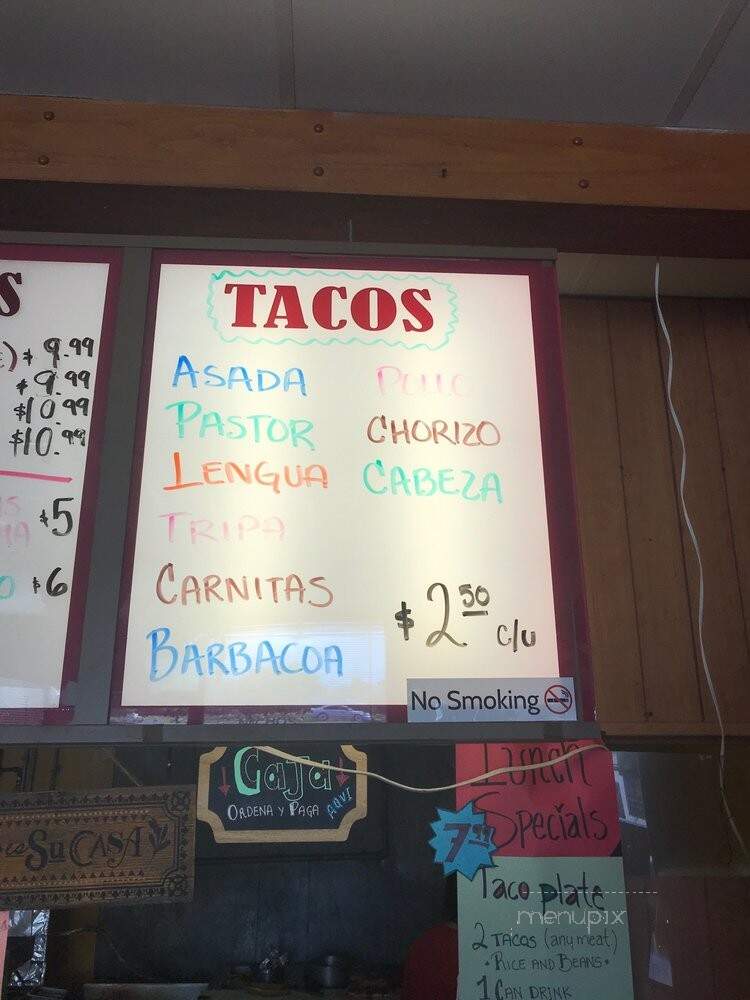 S
) $9.99
$9.99
$10.99
$10.99
$5
$6
TACOS
ASADA
PASTOR
LENGUA
TRIPA
CARNITAS
BARBACOA
POLLO
CHORIZO
CABEZA
$2.50 c/u
No Smoking
Caja
ORDENA Y PAGA AQUI
Su CASA
Lunch
Specials
7.99
Taco plate
2 TACOS (any meat)
• RICE AND BEANS •
1 CAN DRINK
menupix